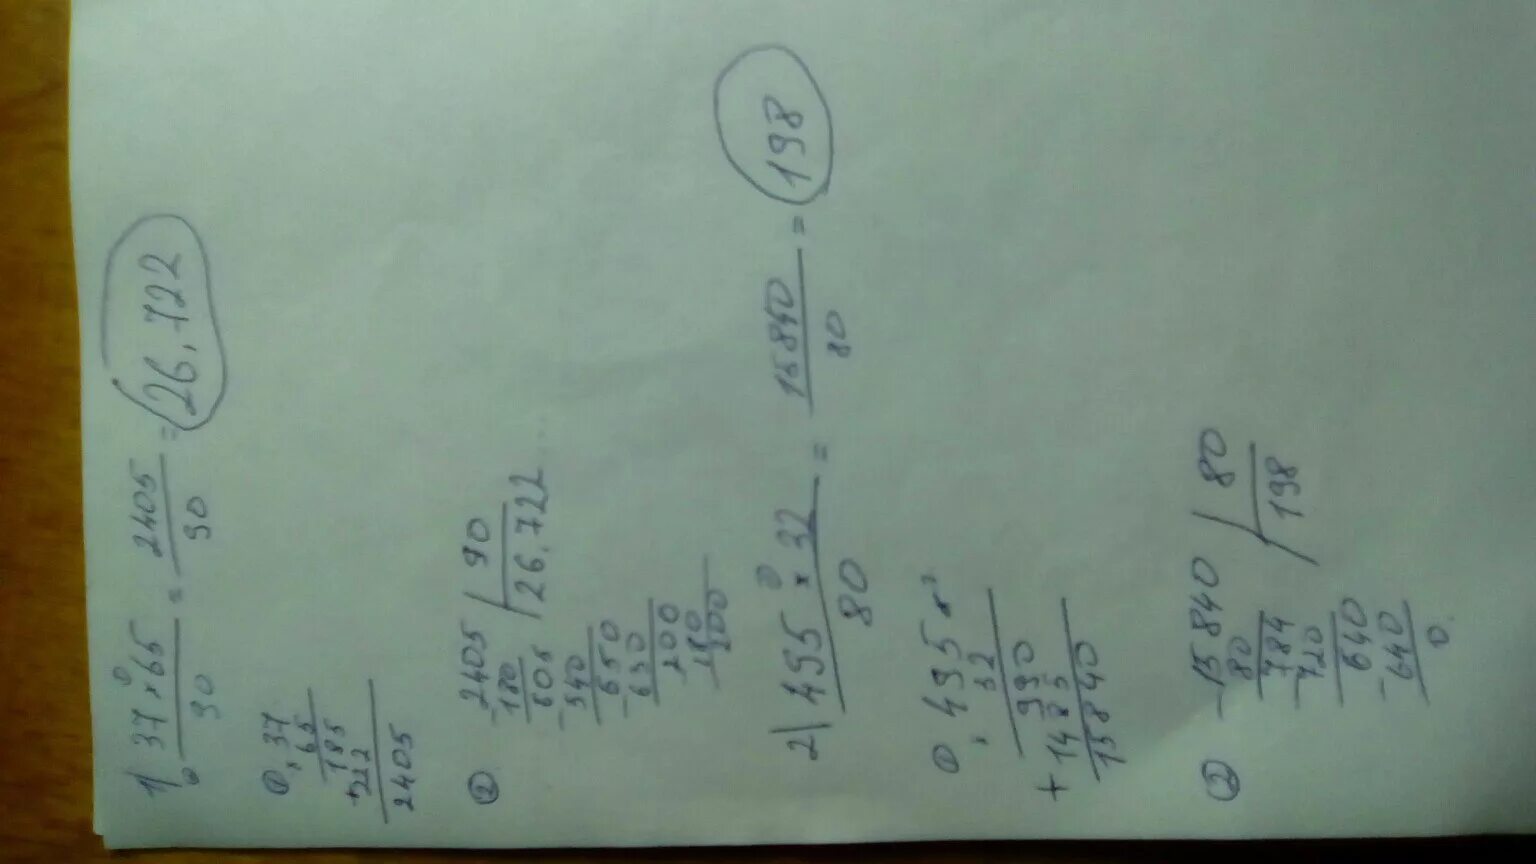 1) 37 × 65 / 90 = 2405 / 90 = 26,722
① × 37
65
185
+ 222
2405
② - 2405 | 90
180 | 26,722...
605
- 540
650
- 630
200
180
200
2) 495 × 32 / 80 = 15840 / 80 = 198
① × 495
32
990
+ 1485
15840
② - 15840 | 80
80 | 198
784
- 720
640
- 640
0